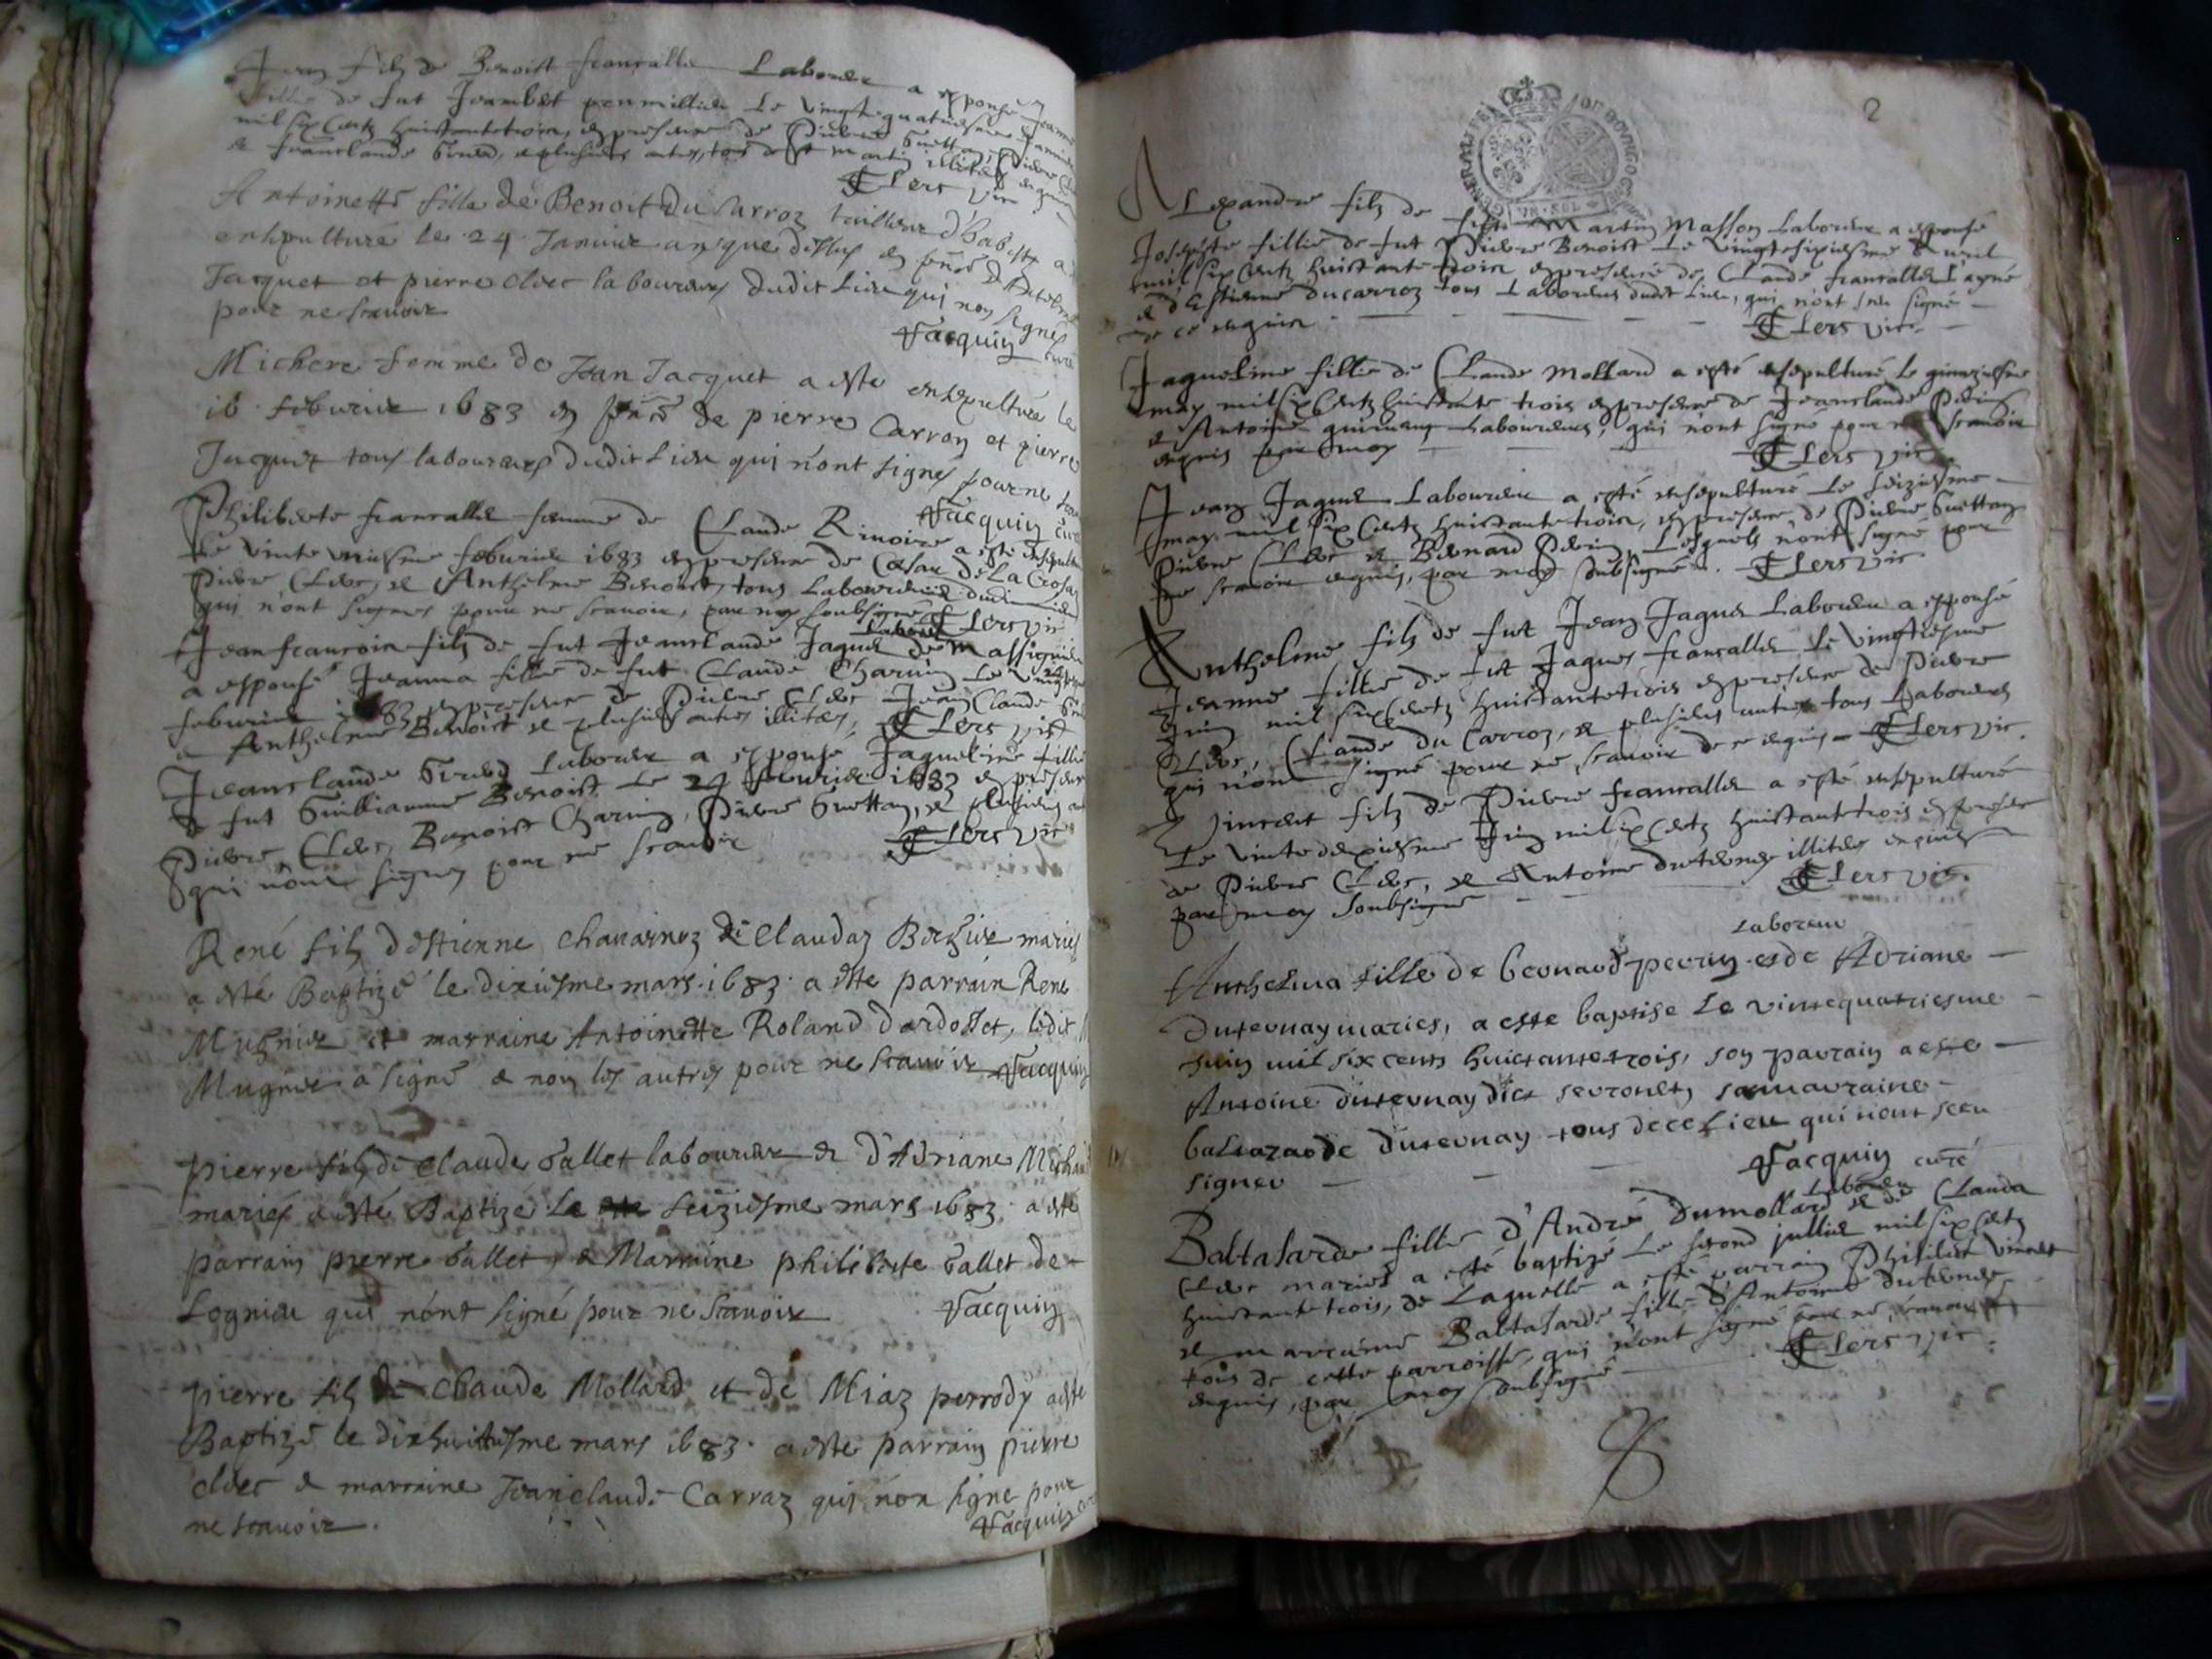 Jean filz de Benoist francallet Laboureur a espousé Jeanne
fille de fut le vingtquatriesme
mil six centz huictantetrois, en presence de Pierre Guettan, Pierre
&
Clerc vic
Antoinette fille de Benoit du Carroz tailleur d'habits a
ensepulturé le 24 Janvier an que dessus en
Jacquet et pierre clerc laboureurs dudit Lieu qui non signés
pour ne scavoir
Jacquin curé
Michere femme de Jean Jacquet a esté ensepulturée le
16 feburier 1683 en de pierre Carron et pierre
Jacquet tous laboureurs dudit Lieu qui n'ont signés pour ne
Jacquin curé
Philiberte francallet femme de Claude a esté
le vinte uniesme feburier 1683 en presence de Cesar de La Crosaz
Pierre Clerc, & Anthelme Benoist, tous Laboureurs dudit
qui n'ont signes pour ne scavoir, par moy soubsigné Clerc vic
Laboureur
Jean francois filz de fut Jeanclaude Jaquet de Massignieu
a espousé Jeanna fille de fut Claude Charvin le
feburier 1683 en presence de Pierre Clerc Jean Claude
& Anthelme Benoist & plusieurs autres illites, Clerc vic
Jeanclaude Laboureur a espousé Jaqueline fille
de fut Guilliaume Benoist le 24 feburier 1683 en presence
Pierre Clerc, Benoist Charvin, Pierre Guettan, & plusieurs
qui n'ont signes pour ne scavoir Clerc vic
René filz d'Estienne chavarnoz & Claudaz mariés
a esté Baptizé le dixiesme mars 1683 a esté parrain René
Mugnier et marraine Antoinette Roland d'ardosset, ledit
Mugnier a signé & non les autres pour ne scavoir Jacquin
pierre filz de Claude Gallet laboureur & d'Adriane
mariés a esté Baptizé le seiziesme mars 1683 a esté
parrain pierre Gallet & Marraine philiberte Gallet de
Lognieu qui n'ont signé pour ne scavoir Jacquin
pierre filz de Claude Mollard et de Miaz perrody a esté
Baptizé le dixhuictiesme mars 1683 a esté parrain pierre
clerc & marraine Jeanclauda Carraz qui non signé pour
ne scavoir. Jacquin
2
GENERALITE DE BOURGOGNE
VN SOL
Alexandre filz de Martin Masson Laboureur a espousé
Josephte fillie de fut Pierre Benoist le vingtsixiesme Avril
mil six centz huictante trois en presence de Claude francallet
& d'Estienne ducarroz tous Laboureurs dudit Lieu, qui n'ont sceu signé
de ce enquis
Clerc vic.
Jaqueline fillie de Claude Mollard a esté ensepulturé le
may mil six centz huictante trois en presence de Jeanclaude
& Antoine Laboureurs, qui n'ont signé pour ne scavoir
enquis par moy Clerc vic
Jean Jaquet Laboureur a esté ensepulturé le seiziesme
may mil six centz huictante trois, en presence de Pierre Guettan
Pierre Clerc & Bernard Perrin Lesquels n'ont signé pour
ne scavoir enquis, par moy soubsigné. Clerc vic
Anthelme filz de fut Jean Jaquet Laboureur a espousé
Jeanne fillie de fut Jaques francallet le vingtiesme
Juin mil six centz huictantetrois en presence de Pierre
Clerc, Claude du Carroz, & plusieurs autres tous Laboureurs
qui n'ont signé pour ne scavoir de ce enquis Clerc vic.
Vincent filz de Pierre francallet a esté ensepulturé
le vinte deuxiesme Juin mil six centz huictantetrois en presence
de Pierre Clerc, & Antoine duternay illites enquis
par moy soubsigné Clerc vic.
Laboreur
Anthelma fille de bernard perrin et de Adriane
Duternay maries, a este baptise le vintequatriesme
Juin mil six cents huictantetrois, son parrain a este
Antoine duternay dict sevronet, sa marraine
baltazarde duternay tous de ce Lieu qui nont sceu
signer
Jacquin curé
Laboureur
Baltasarde fillie d'André Dumollard & de Clauda
Clerc mariés a esté baptizé le second jullie mil six centz
huictantetrois, de Laquelle a esté parrain Philibert Vincent
& marraine Baltasarde fille d'Antoine duternay
tous de cette parroisse, qui n'ont signé pour ne scavoir
enquis, par moy soubsigné Clerc vic.